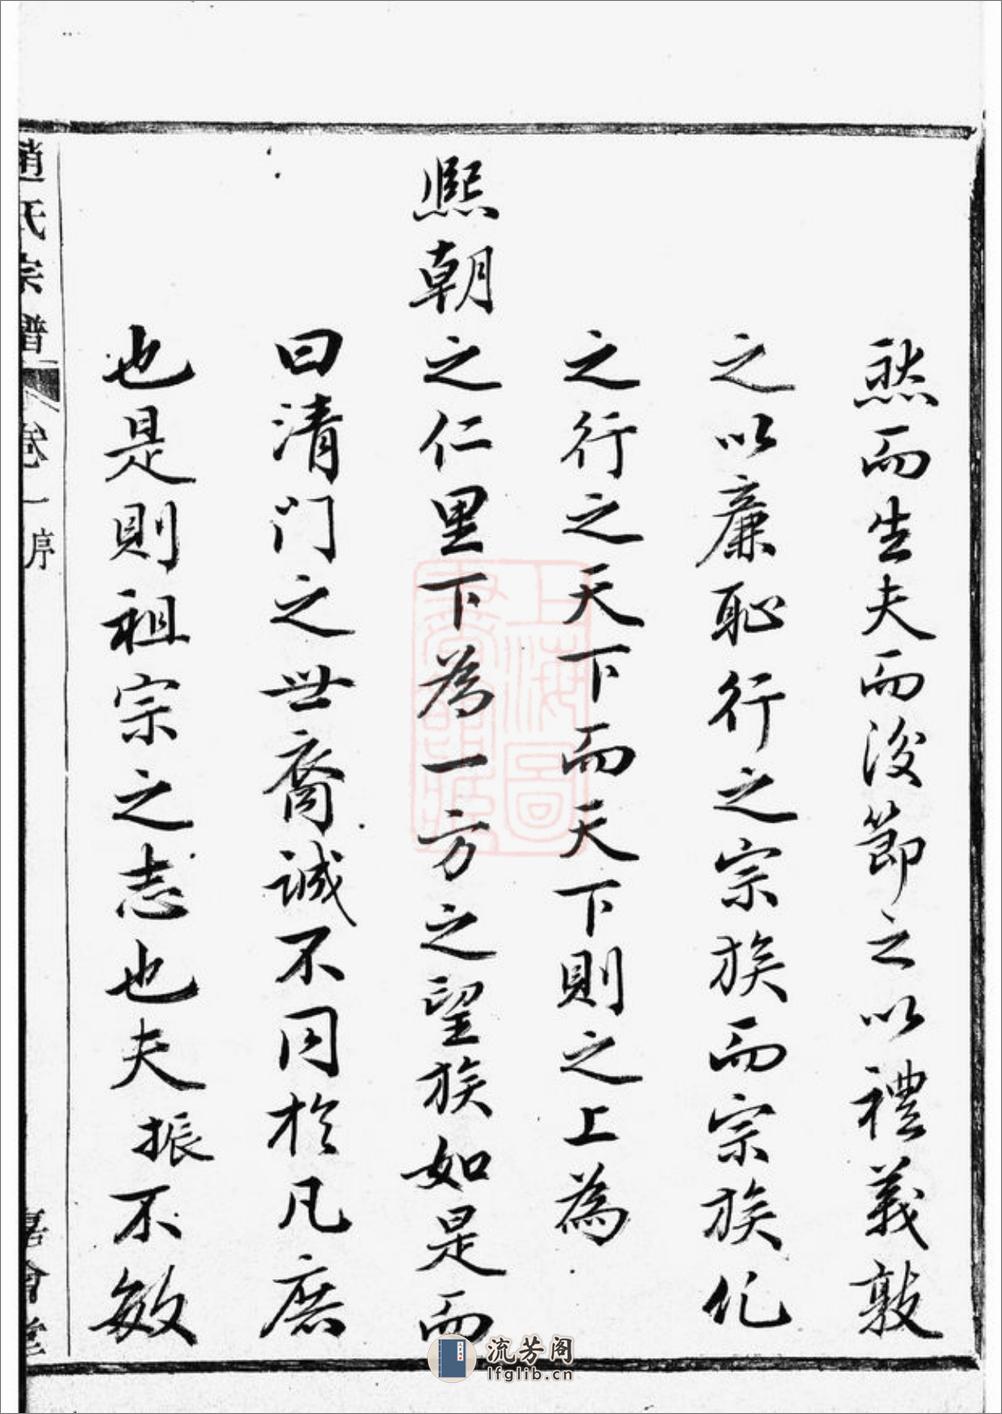 然而生夫而後節之以禮義敦
之以廉恥行之宗族而宗族化
之行之天下而天下則之上為
熙朝之仁里下為一方之望族如是而
曰清門之世裔誠不同於凡庶
也是則祖宗之志也夫振不敏
趙氏宗譜
卷一序
善會堂
上海圖
書館藏
流芳阁
lfglib.cn